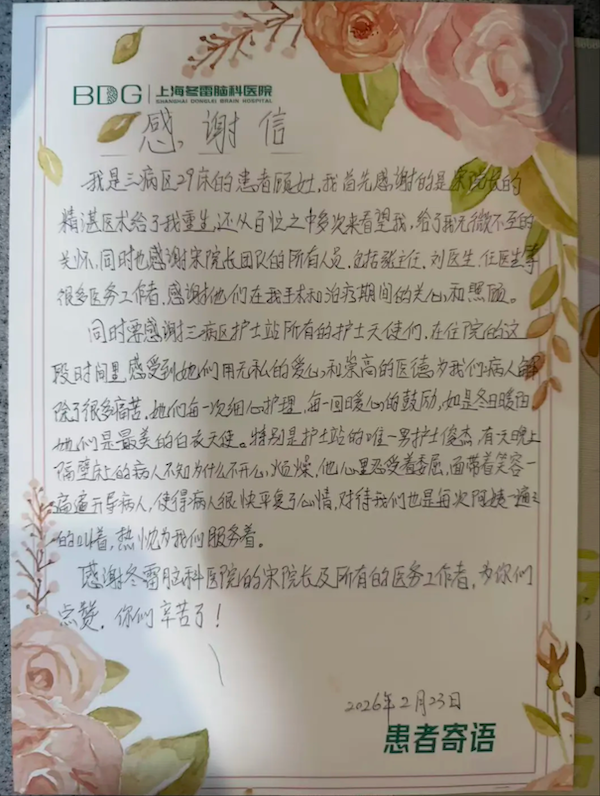 BDG 上海冬雷脑科医院
SHANGHAI DONGLEI BRAIN HOSPITAL
感谢信
我是三病区29床的患者顾女,我首先感谢的是宋院长的
精湛医术给了我重生,还从百忙之中多次来看望我,给了我无微不至的
关怀,同时也感谢宋院长团队的所有人员,包括张主任,刘医生,任医生等
很多医务工作者,感谢他们在我手术和治疗期间的关心和照顾。
同时要感谢三病区护士站所有的护士天使们,在住院的这
段时间里感受到她们用无私的爱心和崇高的医德为我们病人解
除了很多痛苦,她们每一次细心护理,每一回暖心的鼓励,如是冬日暖阳
她们是最美的白衣天使。特别是护士站的唯一男护士俊杰,有天晚上
隔壁床上的病人不知为什么不开心,烦燥,他心里忍受着委屈,面带着笑容一
遍遍开导病人,使得病人很快平复了心情,对待我们也是每次阿姨一遍遍
的叫着,热忱为我们服务着。
感谢冬雷脑科医院的宋院长及所有的医务工作者,为你们
点赞,你们辛苦了!
2026年2月23日
患者寄语